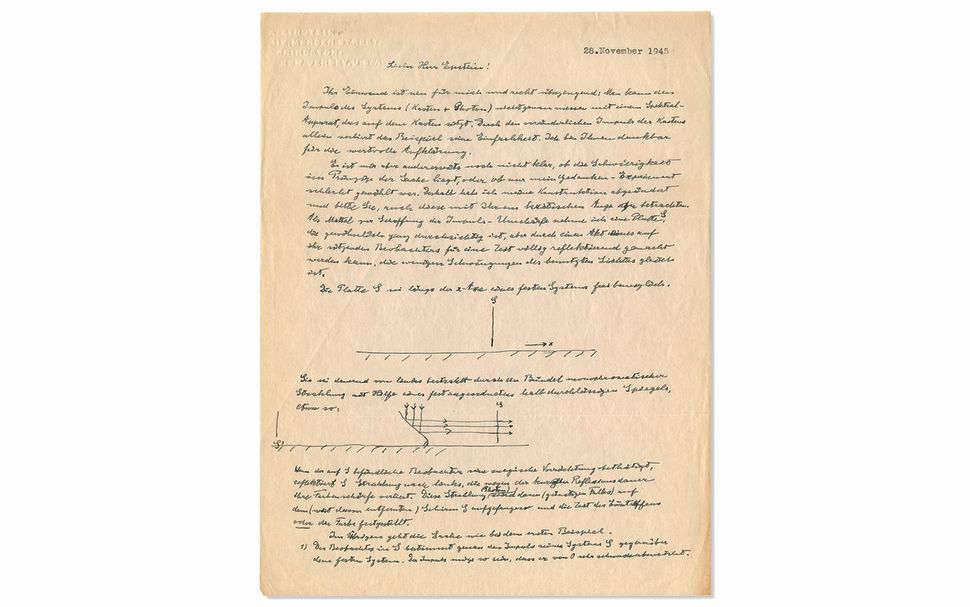 A. EINSTEIN
112 MERCER STREET
PRINCETON,
NEW JERSEY, U.S.A.
28.November 1945
Lieber Herr Epstein!
Ihr Einwand ist neu für mich und recht überzeugend: Man kann den
Impuls des Systems (Kasten + Photon) nicht genau messen mit einem Spektral-
Apparat, der auf dem Kasten sitzt. Durch den veränderlichen Impuls des Kastens
allein verliert das Beispiel seine Einfachheit. Ich bin Ihnen dankbar
für die wertvolle Aufklärung.
Es ist mir aber andererseits noch nicht klar, ob die Schwierigkeit
im Prinzipe der Sache liegt, oder ob nur mein Gedanken-Experiment
schlecht gewählt war. Deshalb habe ich meine Konstruktion abgeändert
und bitte Sie, auch diese mit Ihrem kritischen Auge zu betrachten.
Als Mittel zur Schaffung der Impuls-Unschärfe nehme ich eine Platte S,
die gewöhnlich ganz durchsichtig ist, aber durch einen Akt eines auf
ihr sitzenden Beobachters für eine Zeit völlig reflektierend gemacht
werden kann, die wenigen Schwingungen des benutzten Lichtes gleich
ist.
Die Platte S sei längs der x-Axe eines festen Systems frei beweglich.
S
x
Sie sei dauernd von links bestrahlt durch ein Bündel monochromatischer
Strahlung mit Hilfe eines fest angeordneten halbdurchlässigen Spiegels,
etwa so:
S
S'
Wenn der auf S befindliche Beobachter seine Vorrichtung bethätigt,
reflektiert S Strahlung nach links, die wegen der kurzen Reflexionsdauer
ihre Farbenschärfe verliert. Diese Strahlung (Photon) wird dann (günstigen Falles) auf
dem (weit davon entfernten) Schirm S' aufgefangen und die Zeit des Eintreffens
oder die Farbe festgestellt.
Im Übrigen geht die Sache wie bei dem ersten Beispiel.
1) Der Beobachter in S bestimmt genau den Impuls seines Systems S gegenüber
dem festen System. Der Impuls möge so sein, dass er von 0 sehr schwach abweicht.